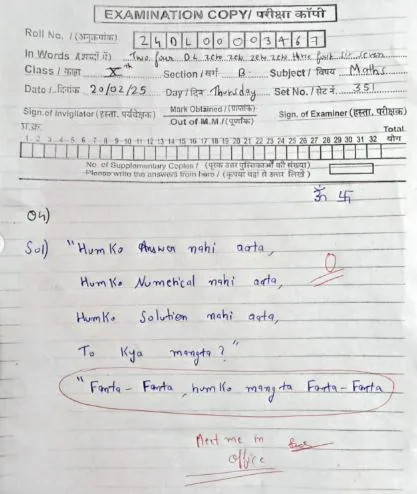 EXAMINATION COPY/ परीक्षा कॉपी
Roll No. / (अनुक्रमांक) 24DL00003467
In Words /(शब्दों में) Two four D L zero zero zero zero three four six seven
Class / कक्षा Xth Section / वर्ग B Subject / विषय Maths
Date / दिनांक 20/02/25 Day / दिन Thursday Set No. / सेट नं. 351
Sign. of Invigilator (हस्ता. पर्यवेक्षक) Mark Obtained / (प्राप्तांक) Out of M.M / (पूर्णांक) Sign. of Examiner (हस्ता. परीक्षक)
प्र.क्र. Total
1 2 3 4 5 6 7 8 9 10 11 12 13 14 15 16 17 18 19 20 21 22 23 24 25 26 27 28 29 30 31 32 योग
No. of Supplementary Copies / (पूरक उत्तर पुस्तिकाओं की संख्या)
Please write the answers from here / (कृपया यहां से उत्तर लिखें)
ॐ 卐
Sol) "Humko Answer nahi aata,
0
Humko Numerical nahi aata,
Humko Solution nahi aata,
To Kya mangta?"
"Fanta - Fanta, humko mangta Fanta - Fanta
Meet me in
office